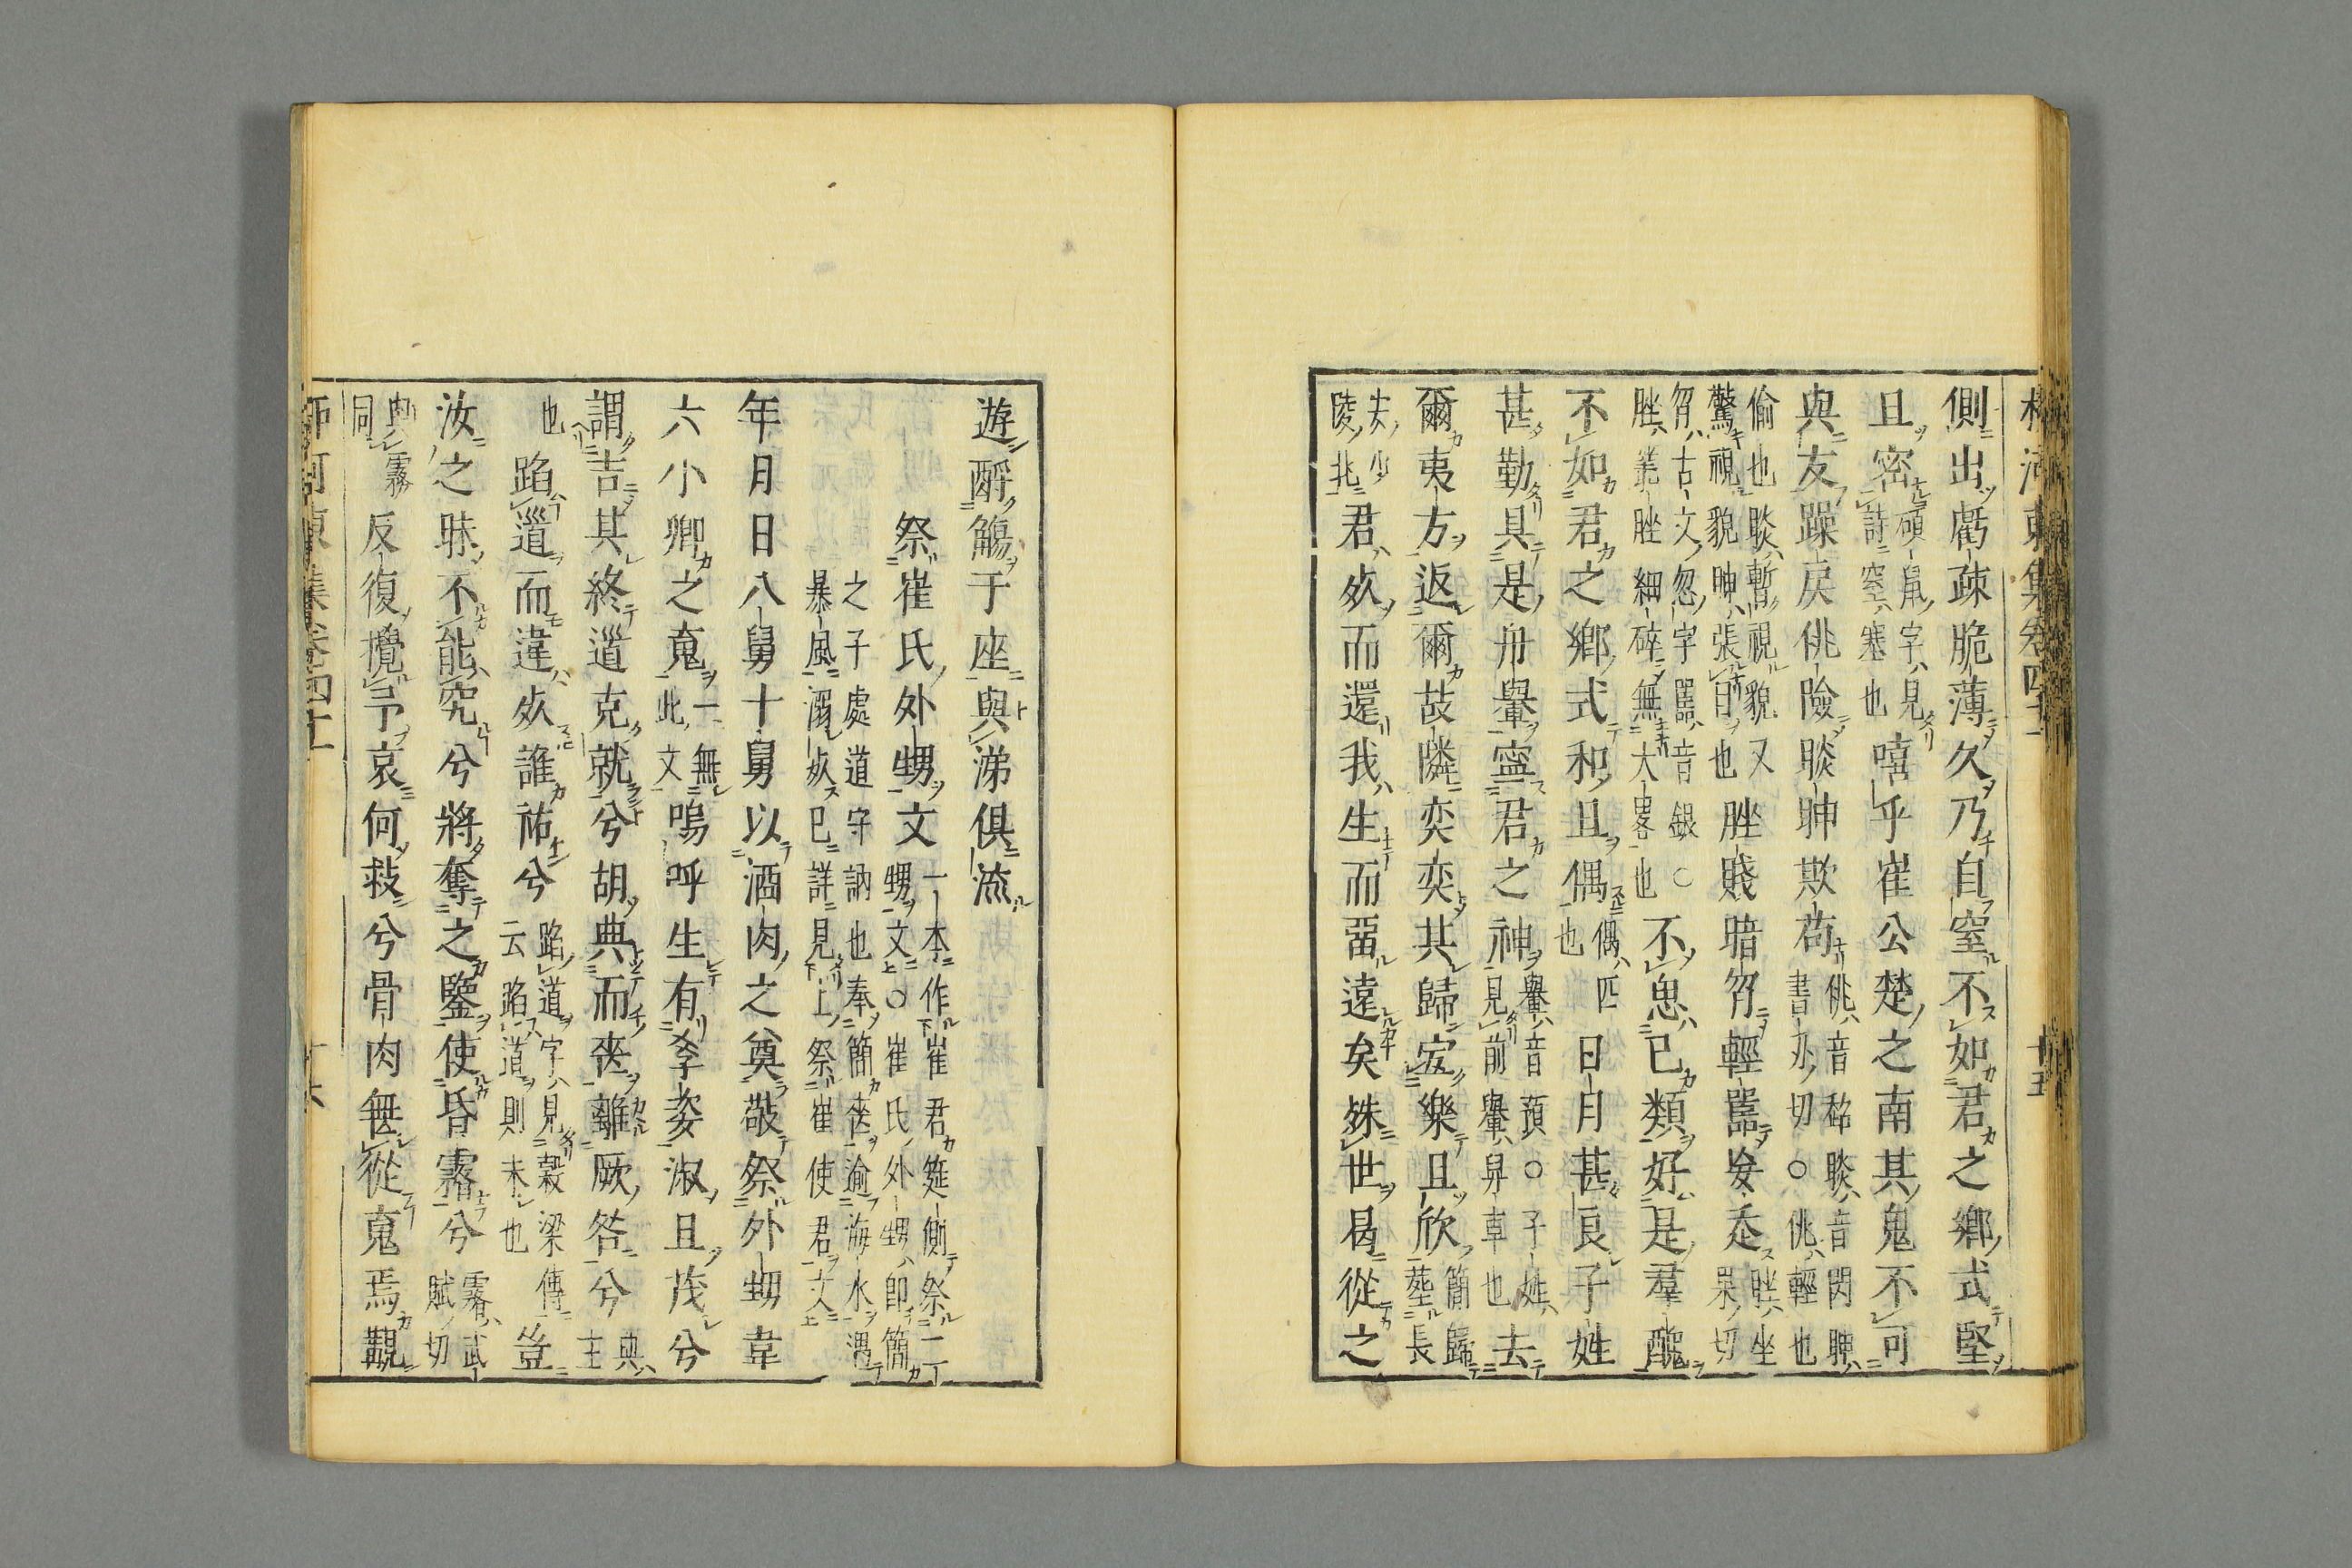 側出虧疎脆薄久乃自窒不如君之鄉式堅
且密碩鼠字見詩窒塞也嘻乎崔公楚之南其鬼不可
與友躁戾佻險睒䀼欺苟佻音祧睒音閃䀼書刃切○佻輕也
偷也睒暫視貌又驚視貌䀼張目也脞賤暗曶輕嚚妄走脞坐果切
曶古文忽字嚚音銀○脞叢脞細碎無大畧也不思己類好是羣醜
不如君之鄉式和且偶偶匹也日月甚良子姓
甚勤具是舟轝寧君之神轝音預○子姓見前轝舁車也去
爾夷方返爾故隣奕奕其歸宏樂且欣簡歸葬長
安少陵北君死而還我生而留遠矣殊世曷從之
遊酹觴于座與涕俱流
祭崔氏外甥文一本作崔君筵側祭二丁甥文○崔氏外甥卽簡
之子處道守訥也奉簡喪逾海水遇暴風溺死已詳見上祭崔使君文
年月日八舅十舅以酒肉之奠敬祭外甥韋
六小卿之䰟一無此文嗚呼生有孝姿淑且茂兮
謂吉其終道克就兮胡典而喪離厥咎兮典主
也蹈道而違死誰祐兮蹈道字見穀梁傳云蹈道則未也豈
汝之昧不能究兮將奪之鑒使昏霿兮霿武賦切
與霧同反復攪予哀何救兮骨肉無從䰟焉覯